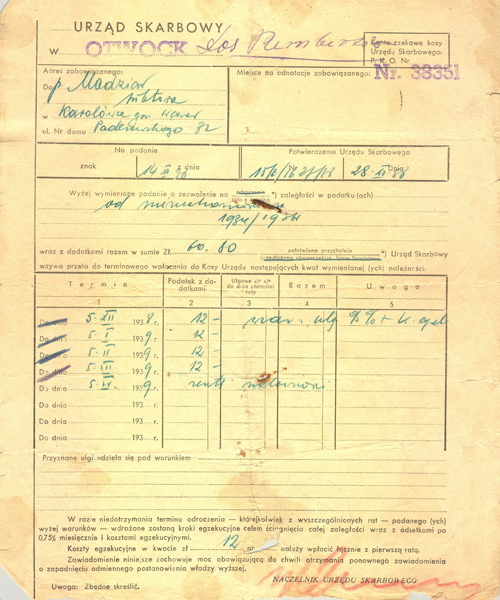 URZĄD SKARBOWY
w OTWOCK
Konto czekowe kasy
Urzędu Skarbowego:
P. K. O. Nr
Nr. 38351
Adres zobowiązanego:
Miejsce na adnotacje zobowiązanego:
Do p. Madziar
Wiktora
w Karolówce gm Wawer
ul. Nr domu Paderewskiego 82
Na podanie
Potwierdzenie Urzędu Skarbowego
znak z dnia
14 XI 38
z dnia
28 XI 38
Wyżej wymienione podanie o zezwolenie na odroczenie *) zaległości w podatku (ach)
od nieruchomości
1934/1936
wraz z dodatkami razem w sumie Zł. 60.80 załatwione przychylnie *) Urząd Skarbowy
wzywa przeto do terminowego wpłacania do Kasy Urzędu następujących kwot wymienionej (ych) należności:
Termin
Podatek z dodatkami
Ulgowe
do dnia płatności
raty
Razem
Uwaga
1 2 3 4 5
Do dnia 5 XII 1938 r. 12 –
Do dnia 5 I 1939 r. 12 –
Do dnia 5 II 1939 r. 12 –
Do dnia 5 III 1939 r. 12 –
Do dnia 5 IV 1939 r. reszta należności
Do dnia 193 r.
Do dnia 193 r.
Do dnia 193 r.
Przyznane ulgi udziela się pod warunkiem
W razie niedotrzymania terminu odroczenia — którejkolwiek z wyszczególnionych rat — podanego (ych)
wyżej warunków — wdrożone zostaną kroki egzekucyjne celem ściągnięcia całej zaległości wraz z odsetkami po
0.75% miesięcznie i kosztami egzekucyjnymi.
Koszty egzekucyjne w kwocie zł 12 gr należy wpłacić łącznie z pierwszą ratą.
Zawiadomienie niniejsze zachowuje moc obowiązującą do chwili otrzymania ponownego zawiadomienia
o zapadnięciu odmiennego postanowienia władzy wyższej.
NACZELNIK URZĘDU SKARBOWEGO
Uwaga: Zbędne skreślić.